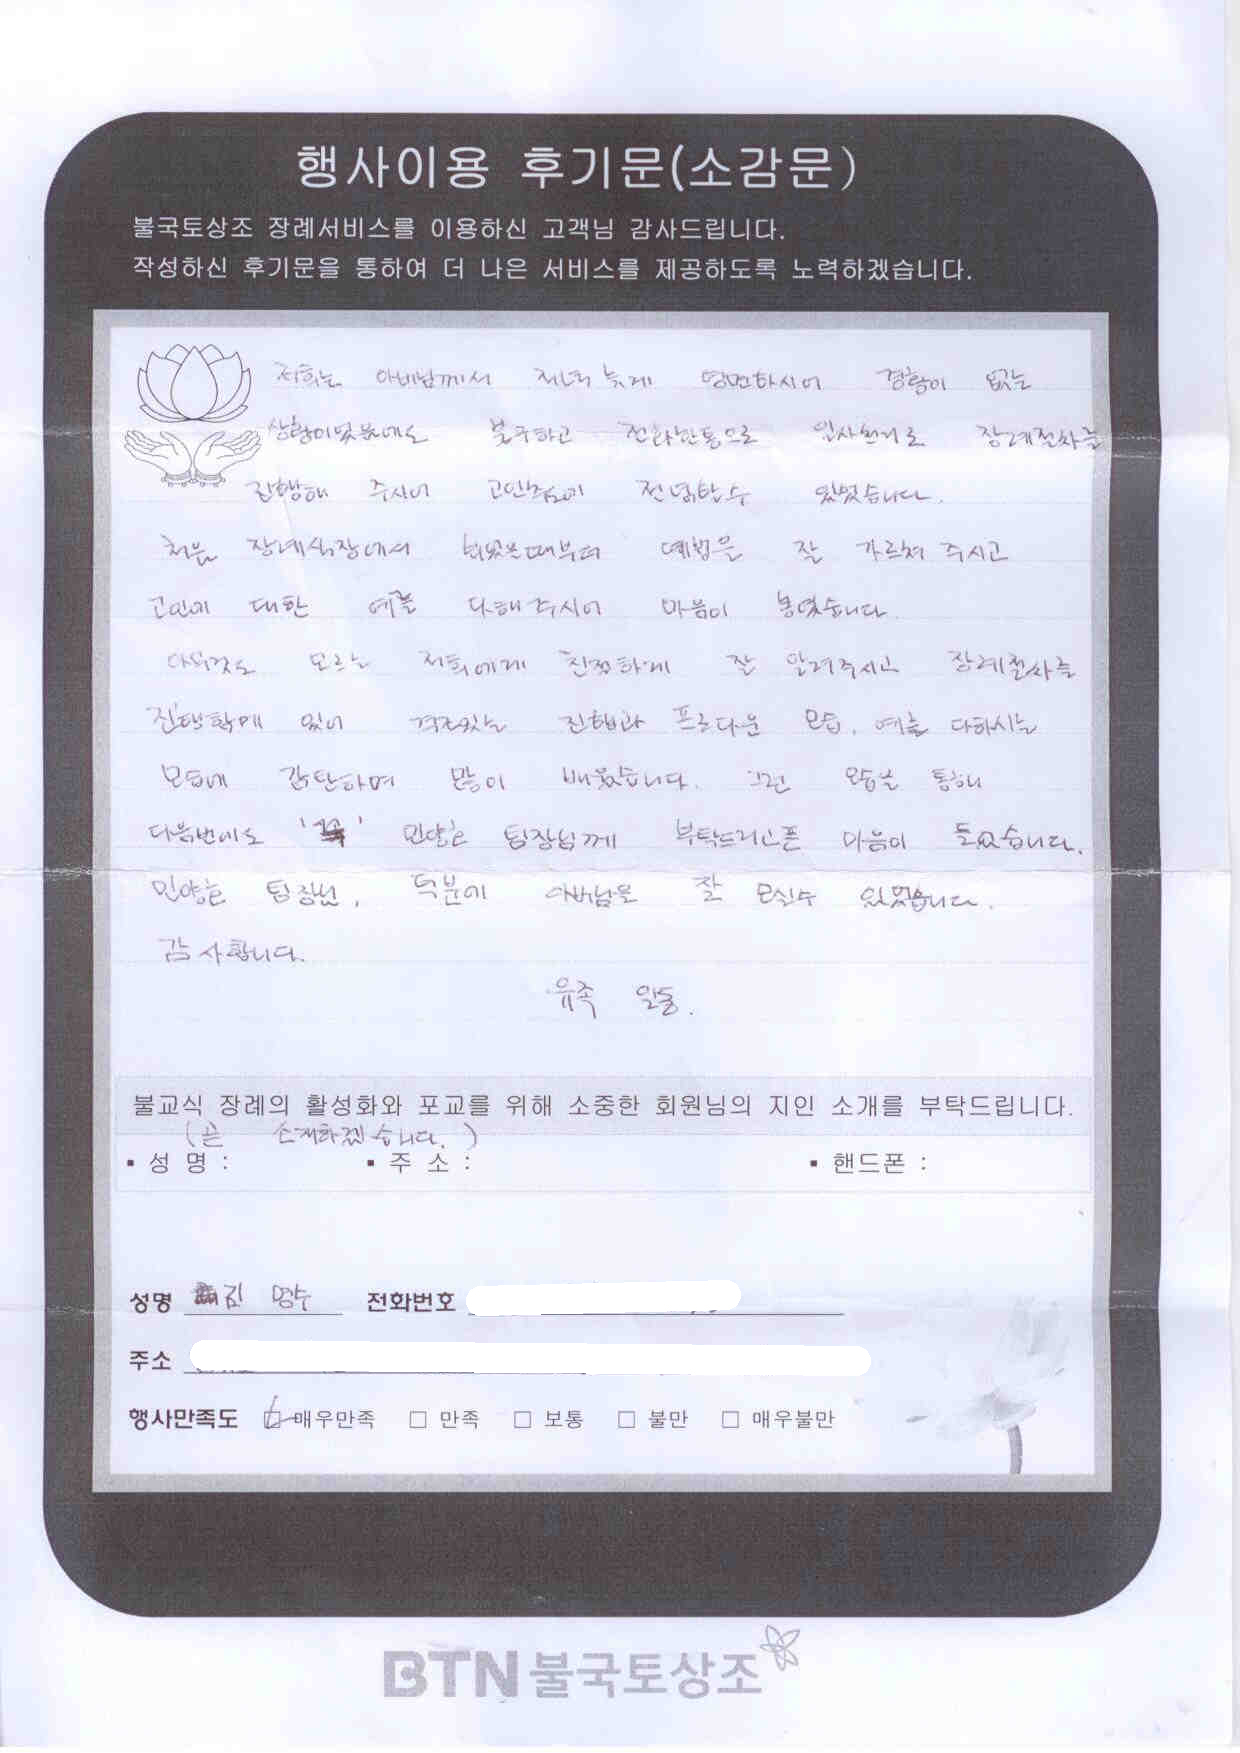 행사이용 후기문(소감문)
불국토상조 장례서비스를 이용하신 고객님 감사드립니다.
작성하신 후기문을 통하여 더 나은 서비스를 제공하도록 노력하겠습니다.
저희는 아버님께서 저녁 늦게 영면하시어 경황이 없는
상황이었음에도 불구하고 전화한통으로 일사천리로 장례절차를
진행해 주시어 고인추모에 전념할수 있었습니다.
처음 장례식장에서 뵈었을때부터 예법을 잘 가르쳐 주시고
고인에 대한 예를 다해주시어 마음이 놓였습니다.
아무것도 모르는 저희에게 친절하게 잘 알려주시고 장례절차를
진행함에 있어 격조있는 진행과 프로다운 모습, 예를 다하시는
모습에 감탄하며 많이 배웠습니다. 그런 모습을 통해
다음번에도 '꼭' 팀장님께 부탁드리고픈 마음이 들었습니다.
팀장님, 덕분에 아버님을 잘 모실수 있었습니다.
감사합니다.
유족 일동.
불교식 장례의 활성화와 포교를 위해 소중한 회원님의 지인 소개를 부탁드립니다.
(곧 소개하겠습니다.)
▪ 성 명 : ▪ 주 소 : ▪ 핸드폰 :
성명 김 명수 전화번호
주소
행사만족도 ☑ 매우만족 □ 만족 □ 보통 □ 불만 □ 매우불만
BTN불국토상조